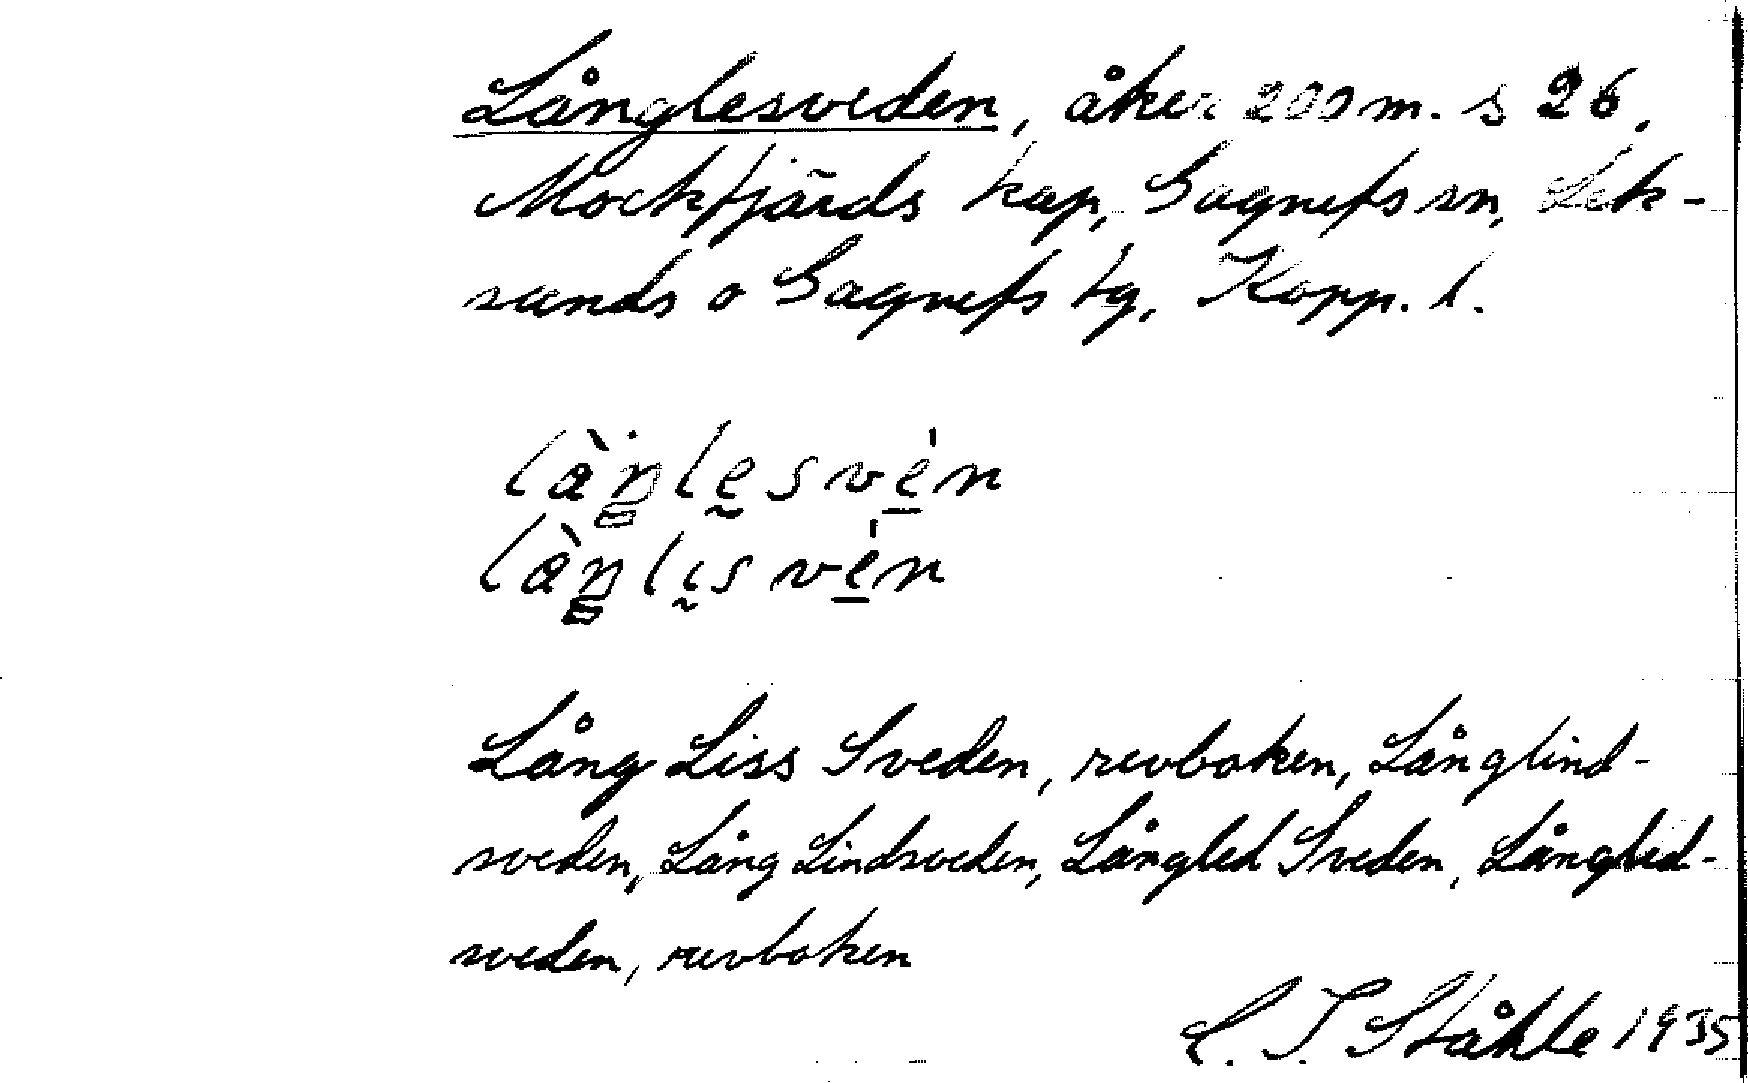 Långlesveden, åker 200 m. s 26,
Mockfjärds kap, Gagnefs sn, Lek-
sands o Gagnefs tg, Kopp. l.
làŋlesvèn
làŋlısvèn
Lång Liss Sveden, revboken, Långlind-
sveden, Lång Lindsveden, Långled Sveden, Långlid-
sveden, revboken
C. I. Ståhle 1935